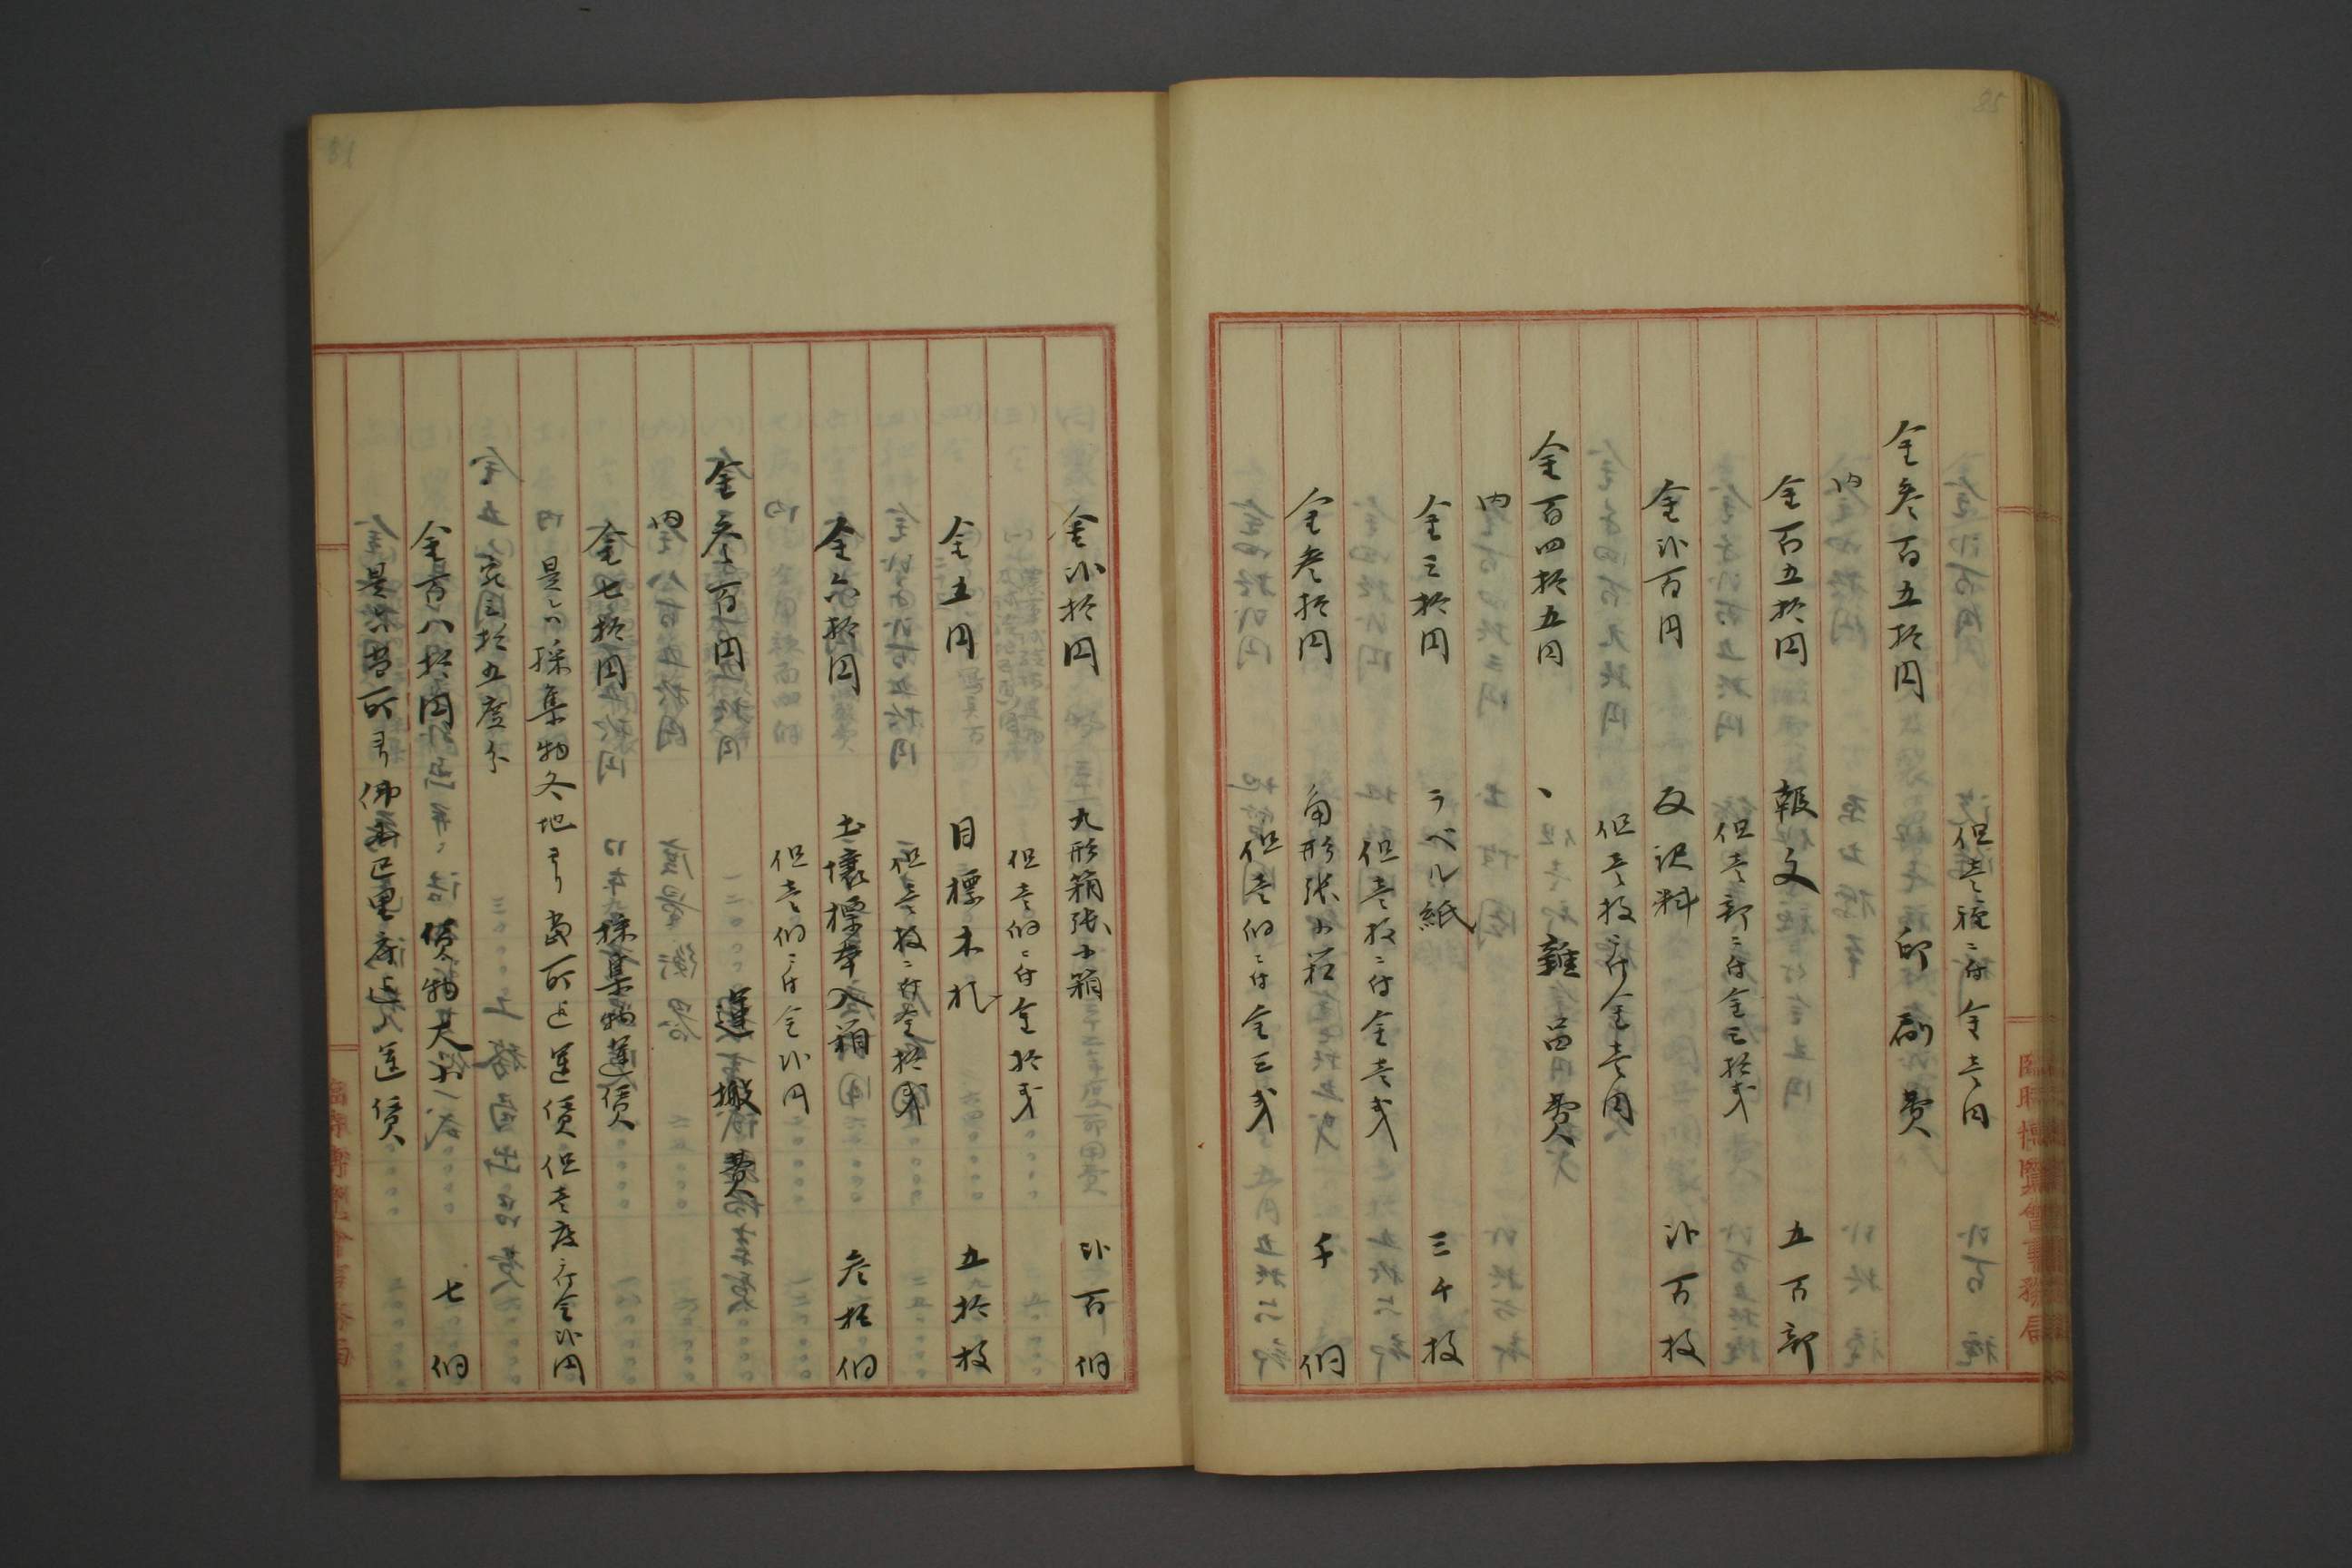 但壱種ニ付金壱円
金参百五拾円 印刷費
内
金百五拾円 報文 五百部
但壱部ニ付金三拾銭
金弐百円 反訳料 弐百枚
但壱枚ニ付金壱円
金百四拾五円 雑品費
内
金三拾円 ラベル紙 三千枚
但壱枚ニ付金壱銭
金参拾円 角形張小箱 千個
但壱個ニ付金三銭
臨時博覧會事務局
金弐拾円 丸形箱張小箱 弐百個
但壱個ニ付金拾銭
金五円 目標木札 五拾枚
但壱枚ニ付金拾銭
金六拾円 土壌標本入箱 参拾個
但壱個ニ付金弐円
金参百円 運搬費
内
金七拾円 採集物運賃
是ハ採集物各地ヨリ当所迄運賃但壱度ニ付金弐円
宛三拾五度分
金百八拾円 貨物大小 七個
是ハ当所ヨリ佛国巴里府迄運賃